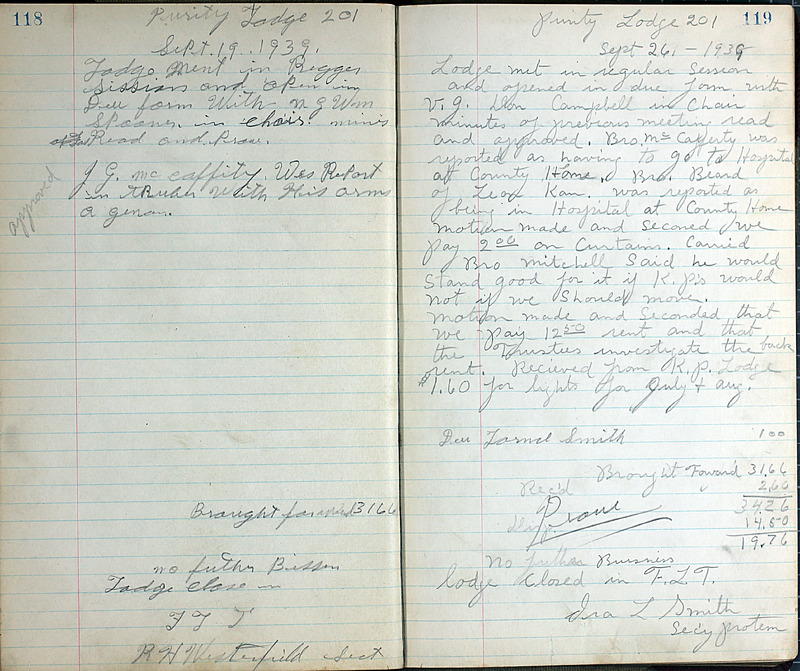 118
Purity Lodge 201
Sept. 19. 1939.
Lodge Ment in Regger
Session and open in
Deu form With N G Wm
Spooner in chair. minis
Read and Prove.
approved
J G. mc caffity. Wes Report
in truher With His arms
a genon.
Brought forward 31 66
no futher Bissen
Lodge Close in
F L T
R H Westerfield Sect
119
Purity Lodge 201
Sept 26, - 1939
Lodge met in regular session
and opened in due form with
V.G. Don Campbell in Chair
minutes of previous meeting read
and approved. Bro. Mc Cafferty was
reported as having to go to Hospital
at County Home. Bro. Beard
of Leon Kan. was reported as
being in Hospital at County Home
motion made and Seconed we
pay 2 00 on Curtains. Carried
Bro Mitchell Said he would
Stand good for it if K.P.s would
not if we Should move.
motion made and Seconded that
we pay 12 50 rent and that
the Trustees investigate the back
rent. Recieved from K.P. Lodge
$1.60 for lights for July + Aug.
Deu Lornd Smith 1 00
Brought Foward 31,66
Rec'd 2.60
Prove 34 26
14.50
19.76
No futher Buisness
lodge Closed in F.L.T.
Ira L Smith
Sec'y protem